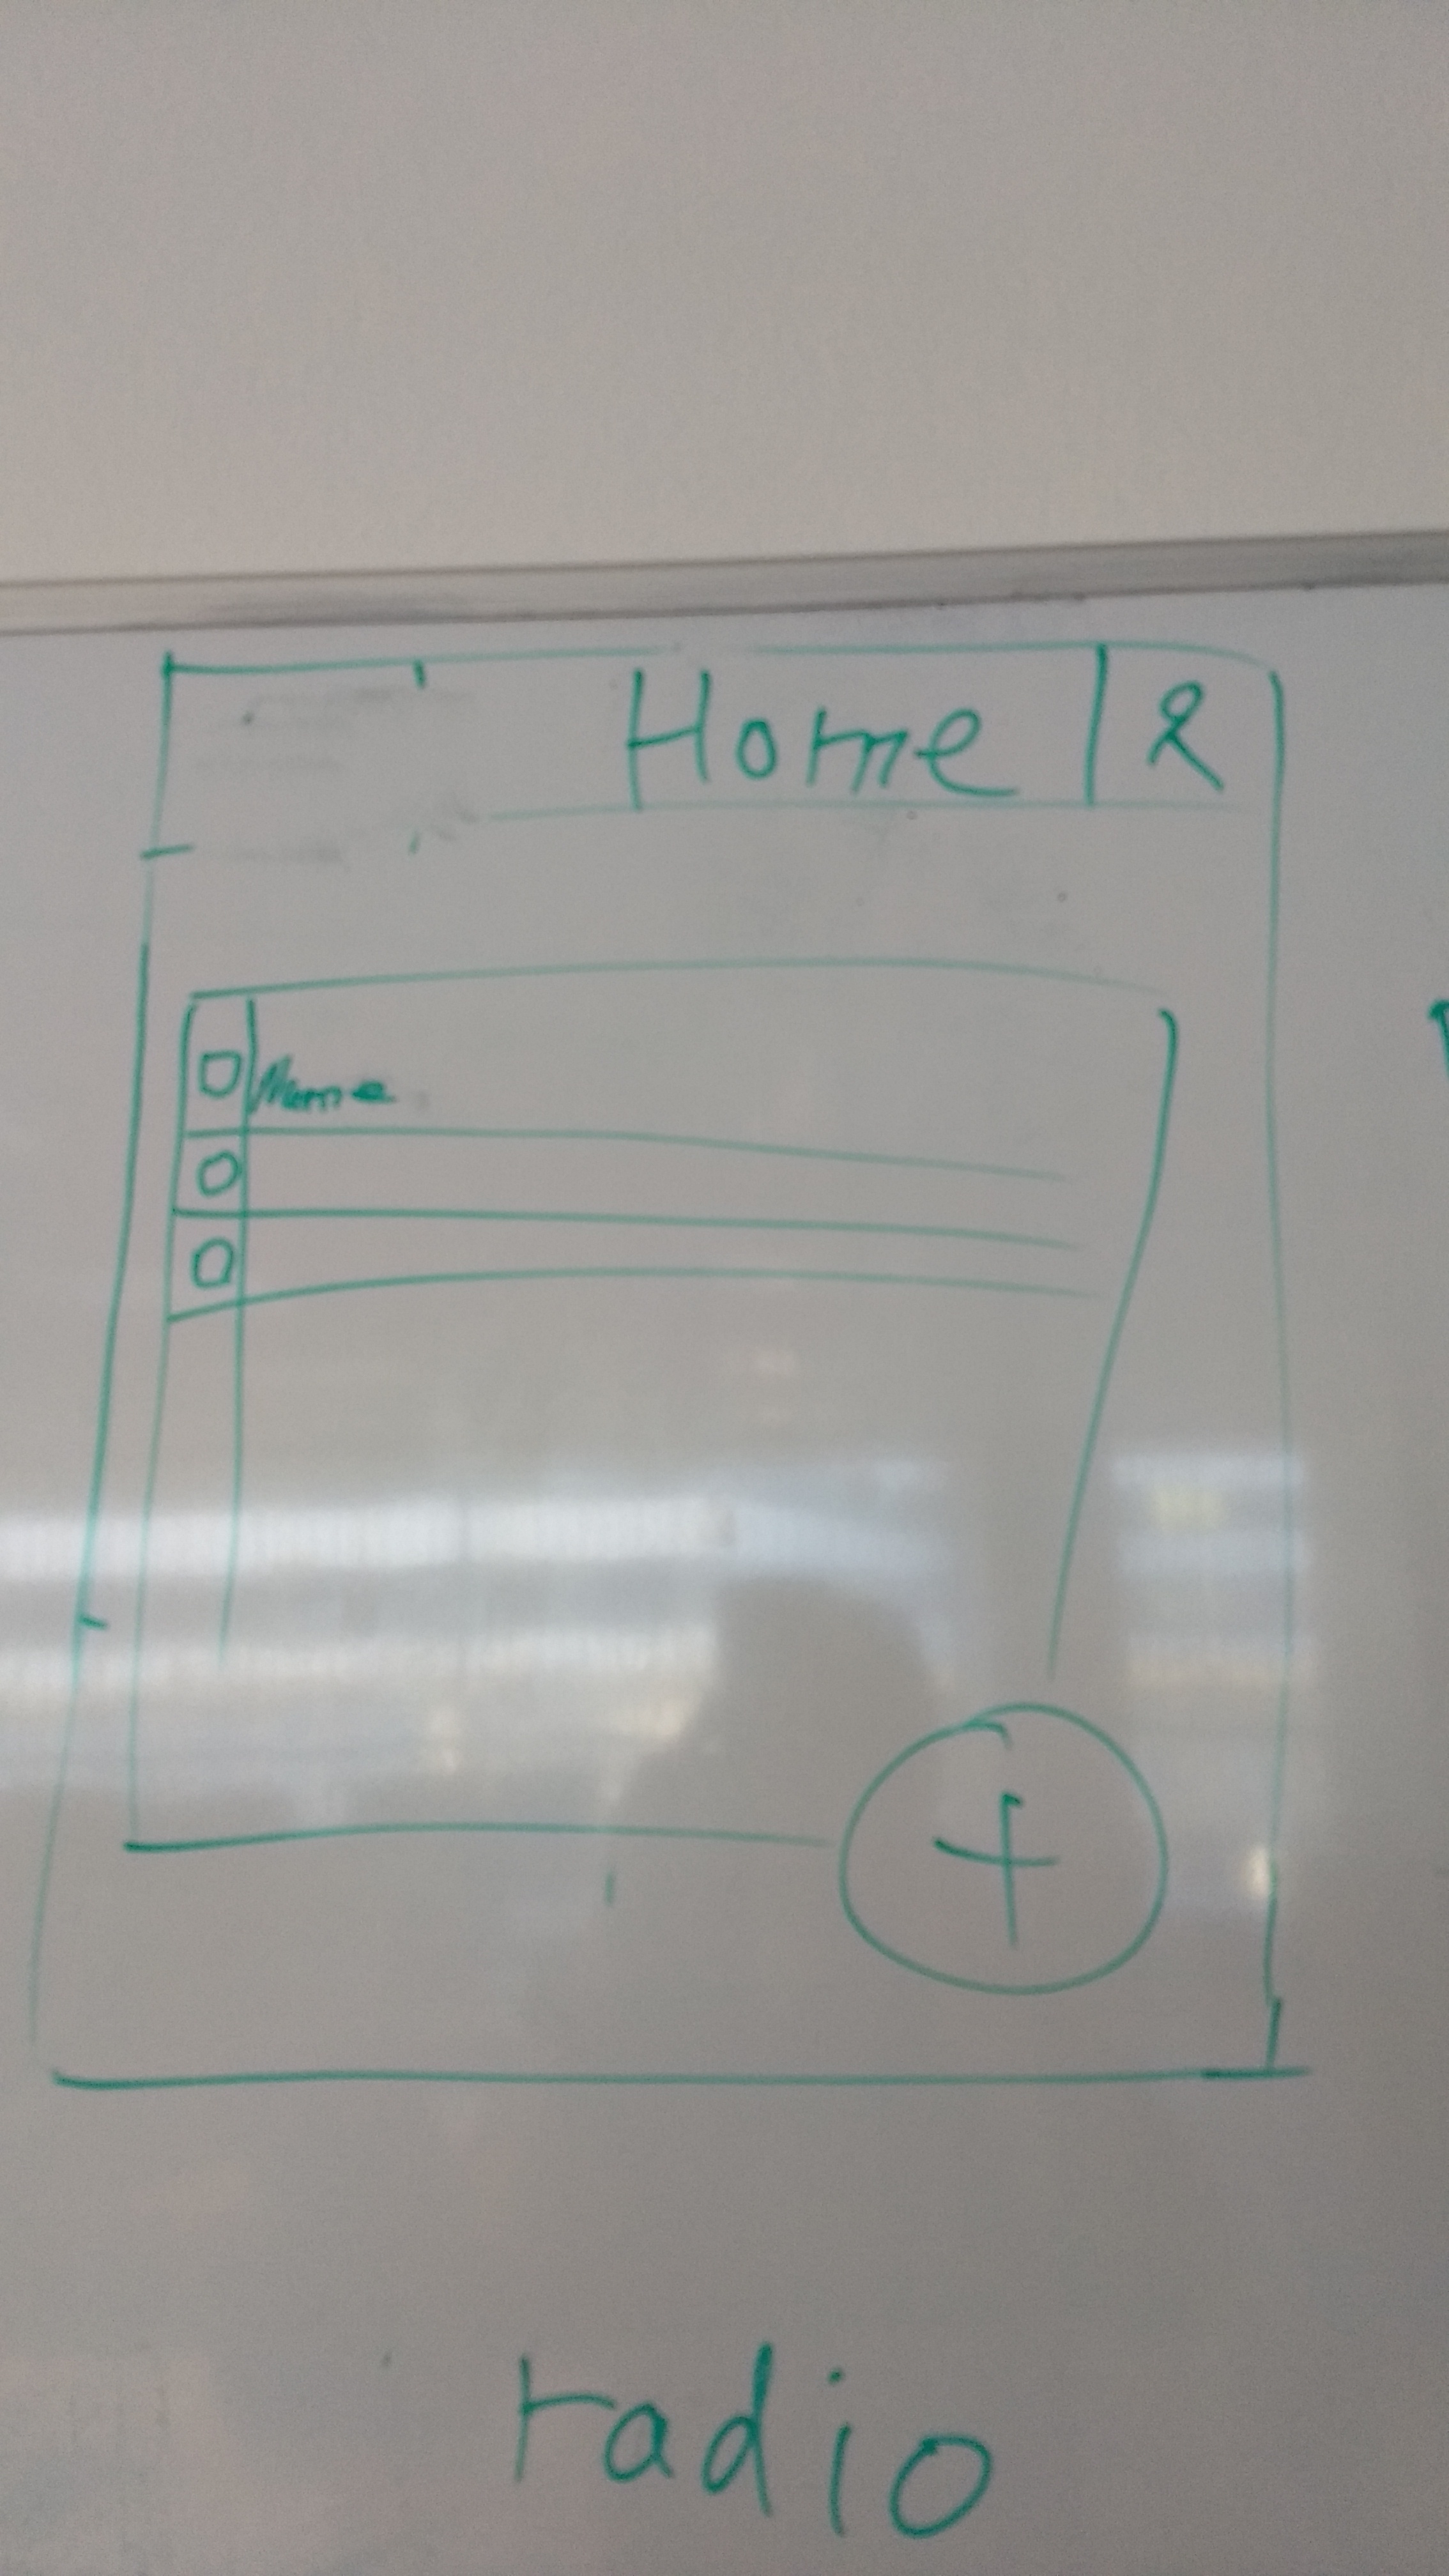 Home
Name
+
radio